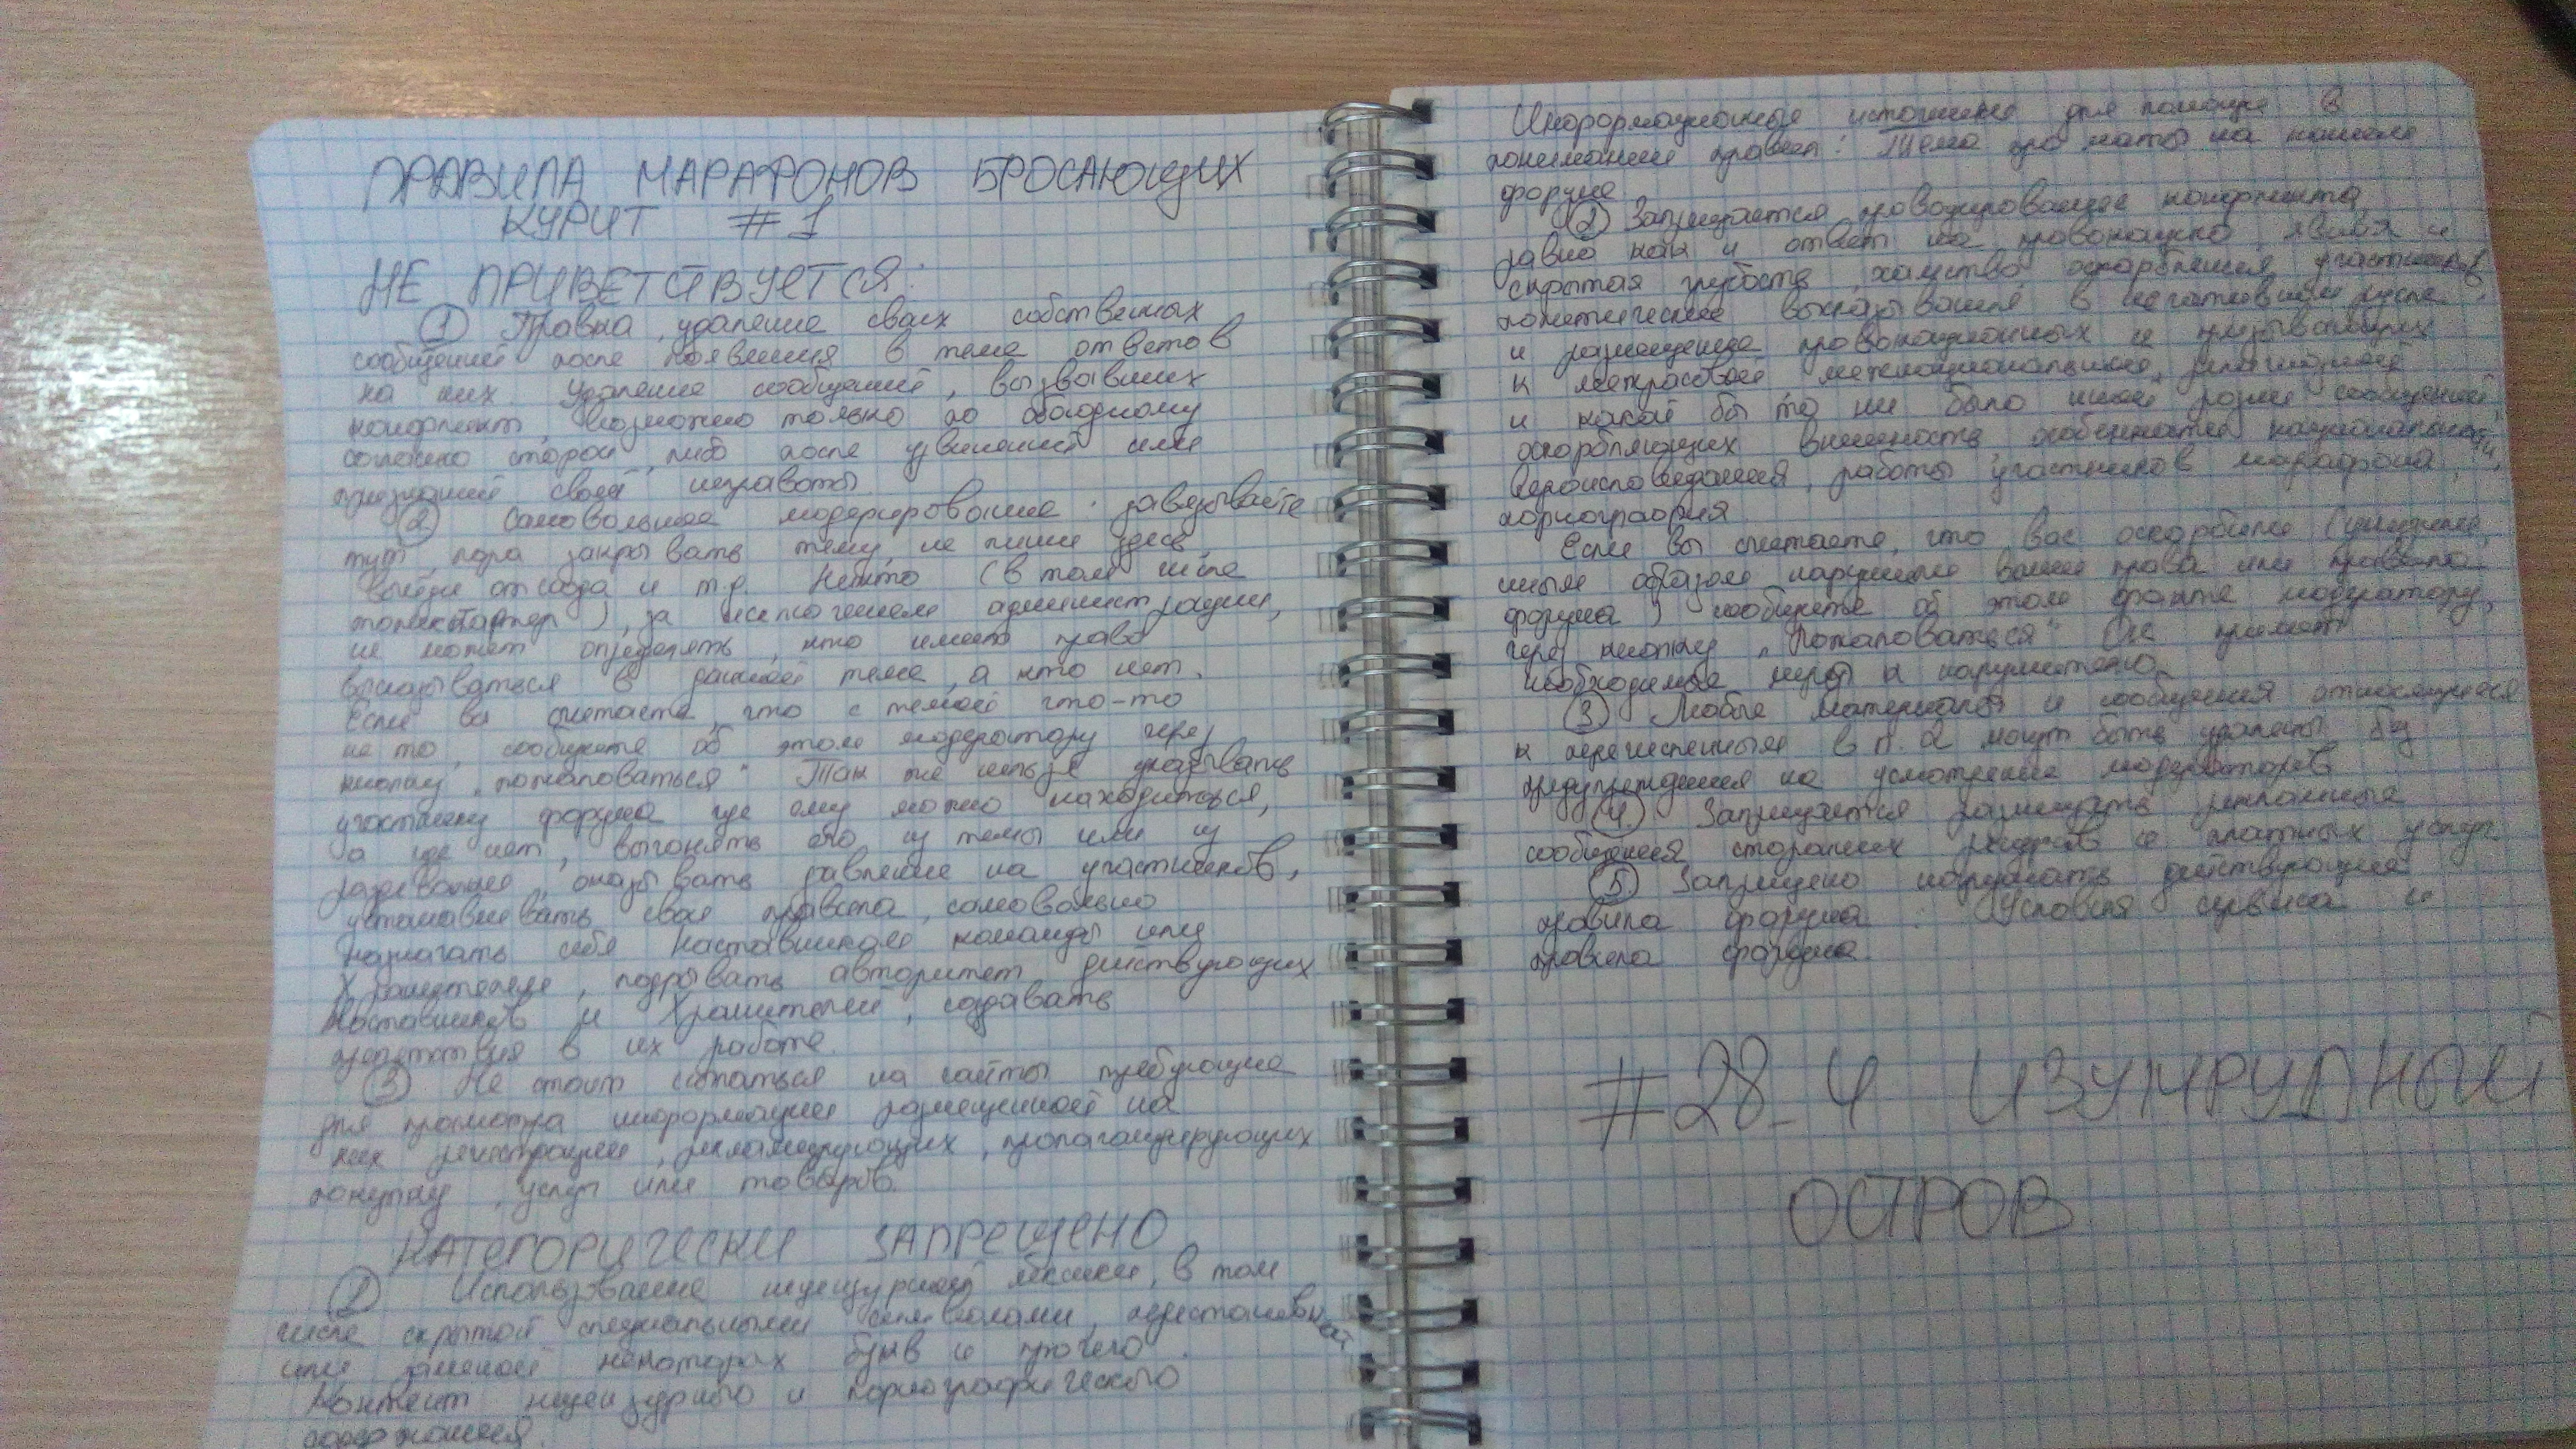 ПРАВИЛА МАРАФОНОВ БРОСАЮЩИХ
КУРИТ #1
НЕ ПРИВЕТСТВУЕТСЯ:
① Правка, удаление своих собственных
сообщений после появления в теме ответов
на них. Удаление сообщений, вызвавших
конфликт, возможно только по обоюдному
согласию сторон, либо после извинений или
признаний своей неправоты
② Самовольное модерирование: завязывайте
тут, пора закрывать тему, не пиши здесь,
выйди отсюда и т.д. Никто (в том числе
топикстартер), за исключением администрации,
не может определять, кто имеет право
высказываться в данной теме, а кто нет.
Если вы считаете, что с темой что-то
не то, сообщите об этом модератору через
кнопку „пожаловаться" Так же нельзя указывать
участнику форума где ему можно находиться,
а где нет, выгонять его из темы или из
раздевалки, оказывать давление на участников,
устанавливать свои правила, самовольно
назначать себя Наставником команды или
Хранителем, подрывать авторитет действующих
Наставников и Хранителей, создавать
препятствия в их работе.
③ Не стоит ссылаться на сайты требующие
для просмотра информации размещенной на
них регистрации, рекламирующих, пропагандирующих
покупку, услуг или товаров.
КАТЕГОРИЧЕСКИ ЗАПРЕЩЕНО
① Использование нецензурной лексики, в том
числе скрытой специальными символами, перестановкой
или заменой некоторых букв и прочего.
Контент нецензурного и порнографического
содержания.
Информационные источники для помощи в
понимании правил: Тема про маты на нашем
форуме
② Запрещается провоцирование конфликта,
равно как и ответ на провокацию, явная и
скрытая грубость, хамство, оскорбления участников,
политические высказывания в негативном русле
и размещение провокационных и призывающих
к межрасовой межнациональной, религиозной
и какой бы то ни было иной розни сообщений,
оскорбляющих внешность, особенности национальности,
вероисповедания, работы участников марафона,
порнография
Если вы считаете, что вас оскорбили (унизили,
иным образом нарушили ваши права или правила
форума) сообщите об этом факте модератору,
через кнопку „Пожаловаться" Он примет
необходимые меры к нарушителю
③ Любые материалы и сообщения относящиеся
к перечисленным в п. 2 могут быть удалены без
предупреждения на усмотрение модераторов
④ Запрещается размещать рекламные
сообщения сторонних ресурсов и платных услуг
⑤ Запрещено нарушать действующие
правила форума: Условия сервиса и
правила форума.
#28_4 ИЗУМРУДНЫЙ
ОСТРОВ